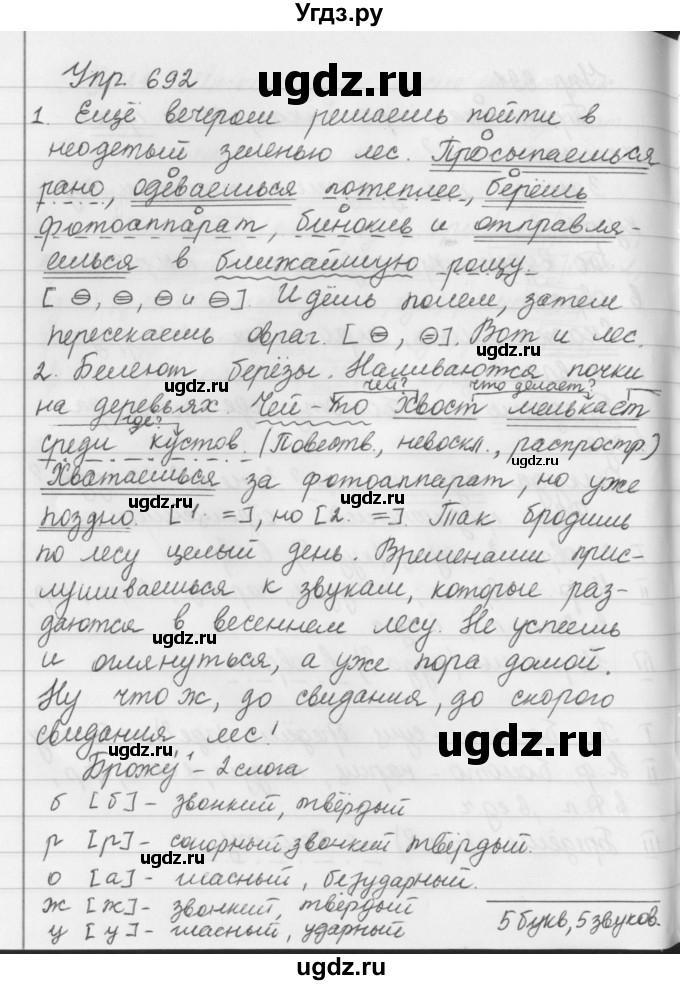 Угдз.ру
Упр. 692
1. Ещё вечером решаешь пойти в
неодетый зеленью лес. Просыпаешься
рано, одеваешься потеплее, берёшь
фотоаппарат, бинокль и отправля-
ешься в ближайшую рощу.
[ ⊖, ⊖, ⊖ и ⊖]. Идёшь полем, затем
пересекаешь овраг. [ ⊖, ⊖]. Вот и лес.
2. Белеют берёзы. Наливаются почки
чей? что делает?
на деревьях. Чей-то хвост мелькает
где?
среди кустов. (Повеств., невоскл., распростр.)
Хватаешься за фотоаппарат, но уже
поздно. [1. =], но [2. =]. Так бродишь
по лесу целый день. Временами прис-
лушиваешься к звукам, которые раз-
даются в весеннем лесу. Не успеешь
и оглянуться, а уже пора домой.
Ну что ж, до свидания, до скорого
свидания лес!
Брожу́ - 2 слога
б [б] - звонкий, твёрдый
р [р] - сонорный звонкий твёрдый.
о [а] - гласный, безударный.
ж [ж] - звонкий, твёрдый
у [у] - гласный, ударный
5 букв, 5 звуков.
ugdz.ru
ugdz.ru
ugdz.ru
ugdz.ru
ugdz.ru
ugdz.ru
ugdz.ru
ugdz.ru
ugdz.ru
ugdz.ru
ugdz.ru
ugdz.ru
ugdz.ru